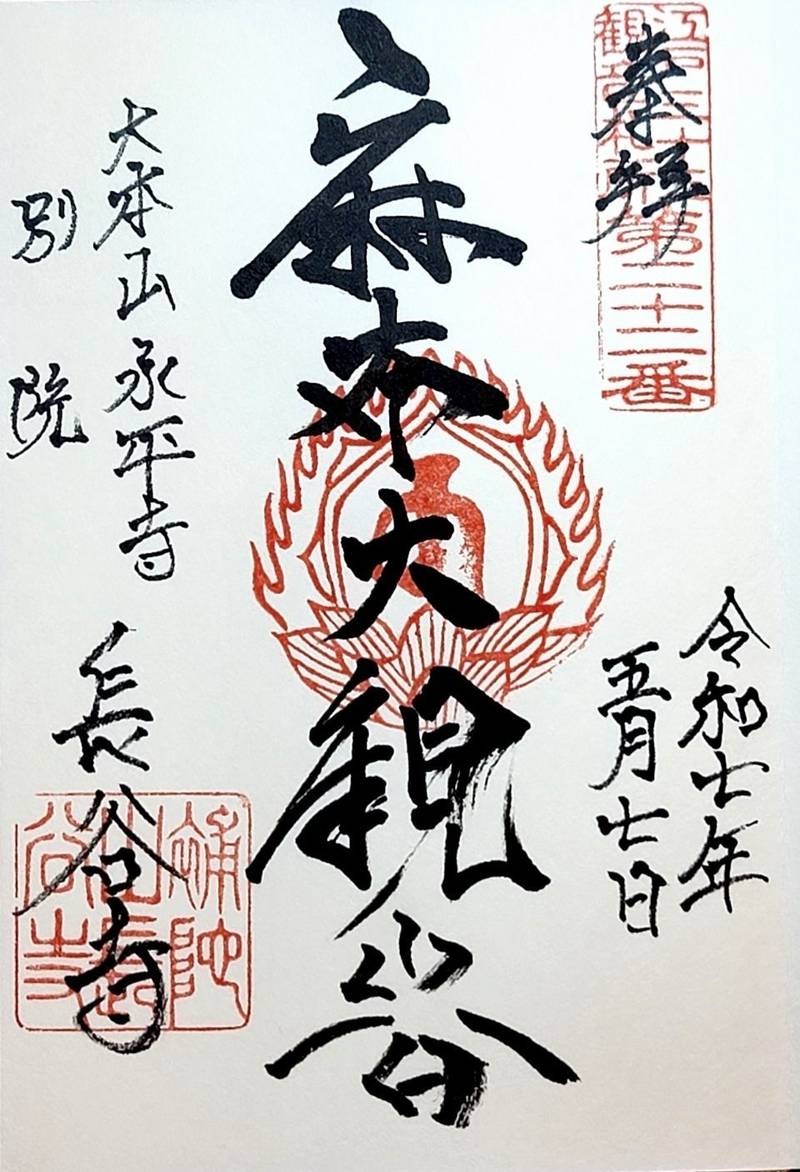 奉拝
江戸三十三
観音札所第二十二番
令和七年
五月七日
麻布大観音
大本山永平寺
別院
長谷寺
補陀
山長
谷寺